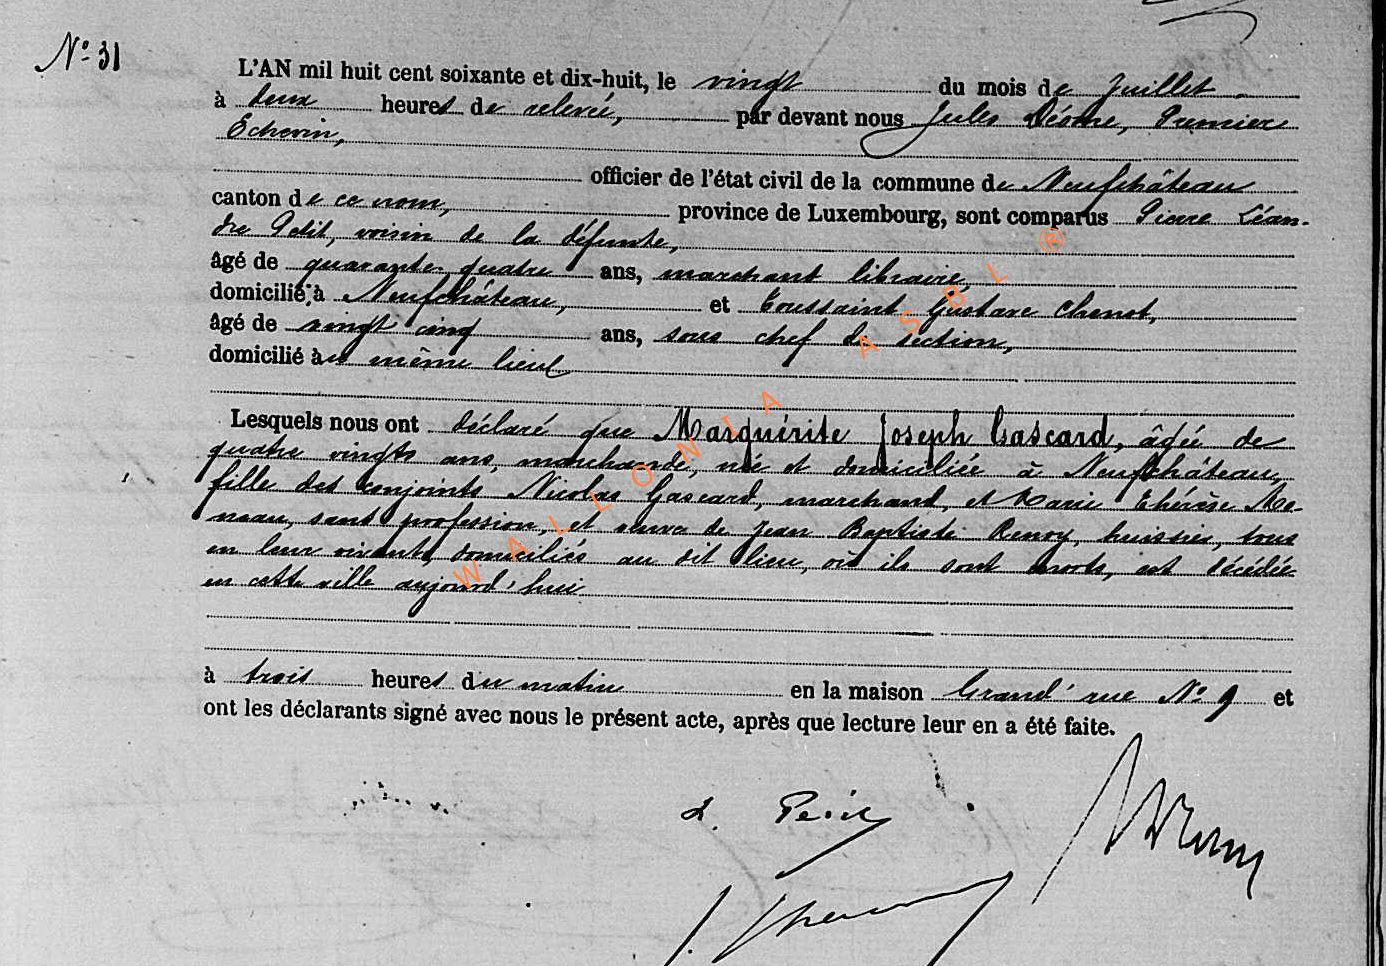 N° 31
L'AN mil huit cent soixante et dix-huit, le vingt du mois de Juillet
à deux heures de relevée, par devant nous Jules Premier
Echevin,
officier de l'état civil de la commune de Neufchâteau
canton de ce nom, province de Luxembourg, sont comparus Pierre Léan-
dre Petit, voisin de la défunte,
âgé de quarante quatre ans, marchant libraire,
domicilié à Neufchâteau, et Toussaint Gustave Chenot,
âgé de vingt cinq ans, sous chef de section,
domicilié au même lieu
Lesquels nous ont déclaré que Marguérite Joseph Gascard, âgée de
quatre vingts ans, marchande, née et domiciliée à Neufchâteau,
fille des conjoints Nicolas Gascard, marchand, et Marie Thérèse
sans profession, et veuve de Jean Baptiste Renoy, huissier, tous
en leur vivant domiciliés au dit lieu, où ils sont morts, est décédée
en cette ville aujourd'hui
à trois heures du matin en la maison Grand'rue N° 9 et
ont les déclarants signé avec nous le présent acte, après que lecture leur en a été faite.
L. Petit
WALLONIA ASBL ®